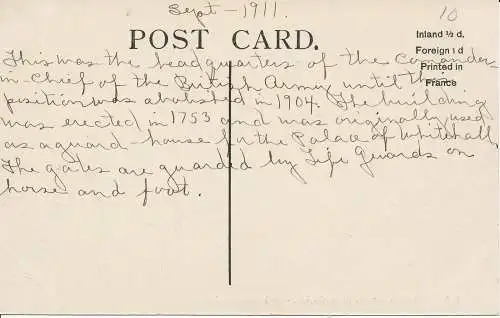 Sept - 1911.
10
POST CARD.
Inland ½ d.
Foreign 1 d
Printed in
France
This was the headquarters of the Comander-
in-Chief of the British Army until this
position was abolished in 1904. The building
was erected in 1753 and was originally used
as a guard-house for the Palace of Whitehall.
The gates are guarded by Life Guards on
horse and foot.